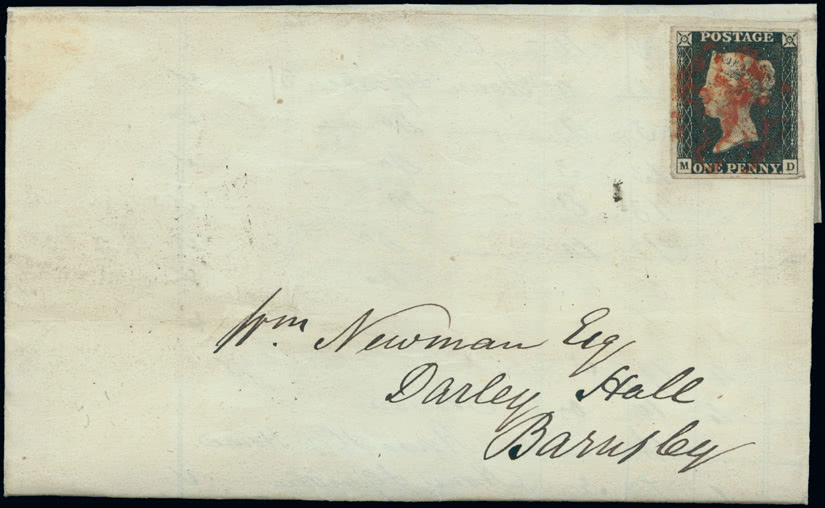 POSTAGE
M ONE PENNY D
Wm Newman Esq
Darley Hall
Barnsley